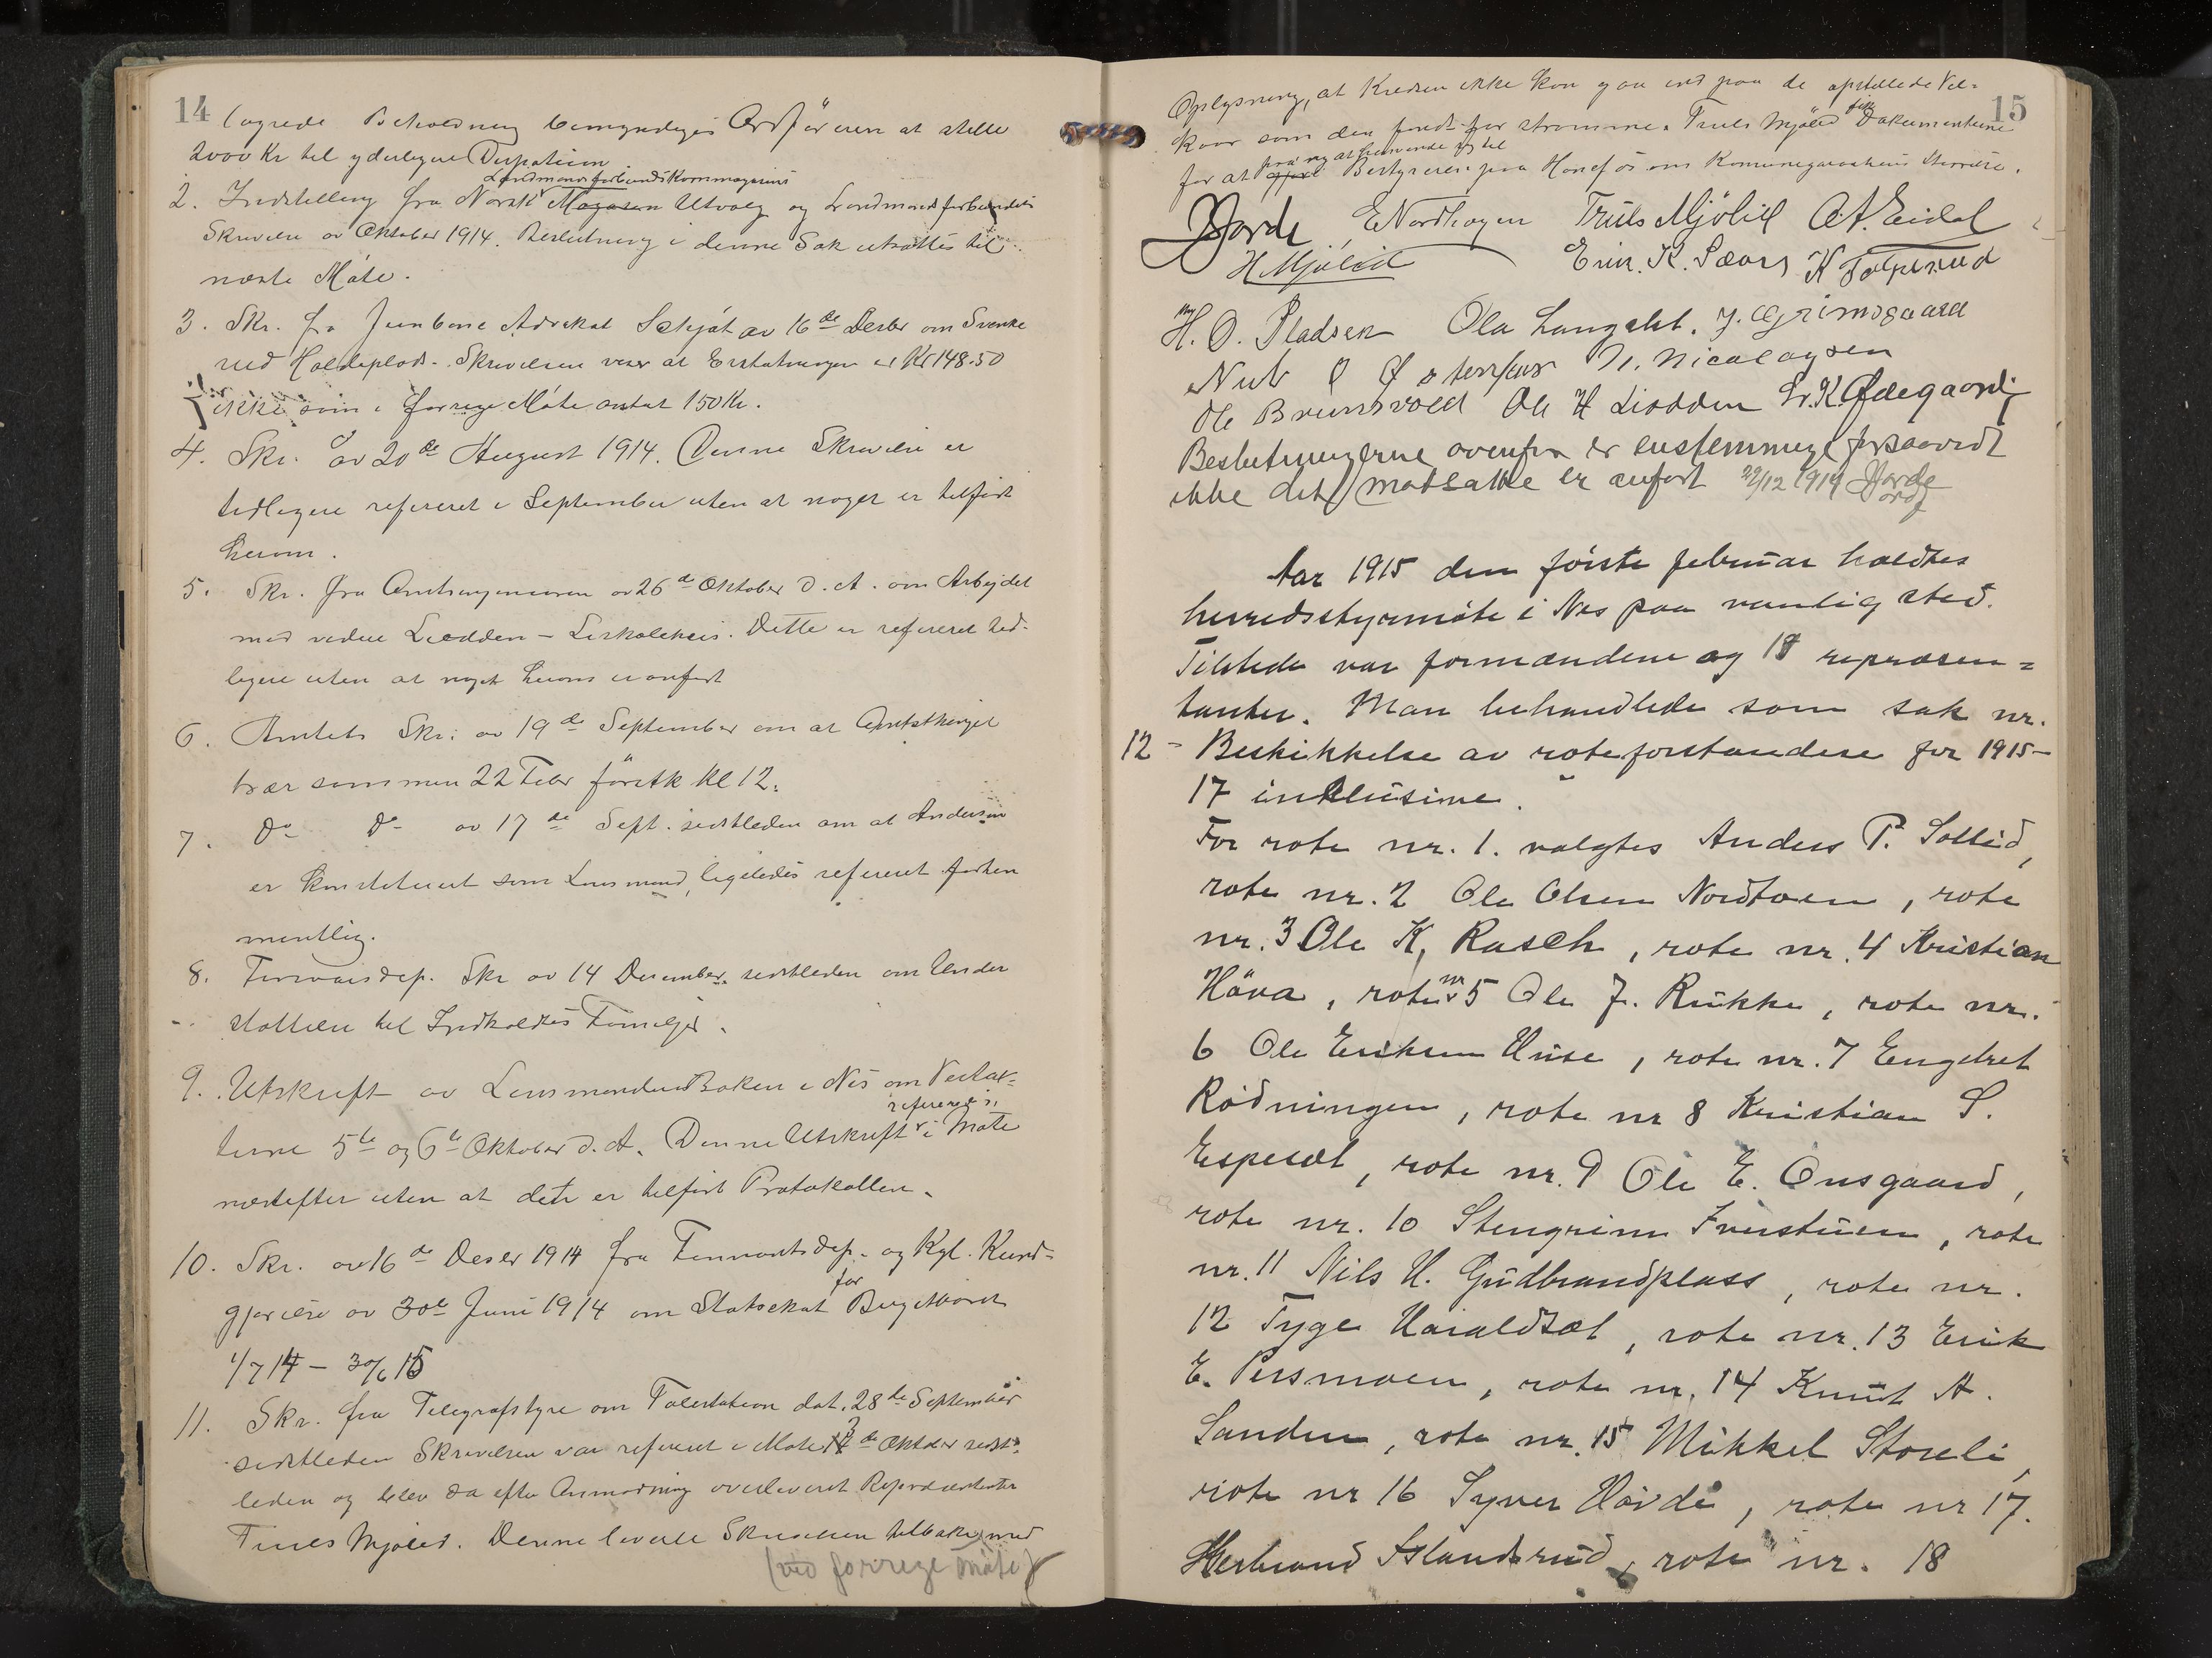 14
lagrede Beholdning bemyndiges Ordføreren at stelle
2000 Kr til yderligere Disposition
Landmandsforbunds Kornmagasins
2. Indstilling fra Norsk Magasin Utvalg og Landmandsforbundets
Skrivelse av Oktober 1914. Beslutning i denne Sak utsættes til
næste Møte.
3. Skr. fra Jernbane Advokat av 16de Desbr om Svenke
rud Holdeplads. Skrivelsen viser at Erstatningen er Kr 148.50
ikke som i forrige Møte antat 150 Kr.
4. Skr. av 20de August 1914. Denne Skrivelse er
tidligere refereret i September uten at noget er tilført
herom.
5. Skr. fra Amtsingeniøren av 26de Oktober d. A. om Arbeidet
med veden Liodden - . Dette er refereret tid-
ligere uten at noget herom er anført
6. Amtets Skr. av 19de September om at Amtsthinget
træ sammen 22 Febr førstk Kl 12.
7. Do Do av 17de Sept. sidstleden om at Andersen
er konstitueret som Lensmand, ligeledes refereret forhen
mentlig.
8. Forsvarsdep. Skr av 14 Desember sidstleden om Under
støttelse til Indkaldtes Familjer.
9. Utskrift av Lensmandens Boken i Nes om
refereres
terne 5te og 6te Oktober d. A. Denne Utskrift i Møte
næstefter uten at dette er tilført Protokollen.
10. Skr. av 16de Desbr 1914 fra Finantsdep. og Kgl. Kund-
for
gjørelse av 30te Juni 1914 om Statsskat Budgetaaret
1/7 14 - 30/6 15
11. Skr. fra Telegrafstyre om Talestation dat. 28de September
sidstleden Skrivelsen var refereret i Møte 3de Oktober sidst-
leden og blev da efter Anmodning overleveret Repræsentanten
Truls Mjøled. Denne leverte Skrivelsen tilbake med
(ved forrige møte)
15
Oplysning, at Kredsen ikke kan gaa ind paa de opstillede Vil-
fik
kaar som den fandt for stramme. Truls Mjøled Dokumenterne
paa ny at henvende sig til
for at Bestyreren paa Hønefos om Komunegarantiens Størrelse.
Jorde E Nordhagen Truls Mjölid A. A. Eidal
H Mjölid Erik. K. Sævre K Tolpinrud
H. O. Pladsen Ola Langslet. J. Grimsgaard
N. Nicolaysen
Ole Brunsvold Ole H Liodden Er. K. Ødegaard
Beslutningerne ovenfor er enstemmige forsaavidt
ikke det motsatte er anført 29/12 1914 Jorde
ordf
Aar 1915 den første februar holdtes
herredsstyrmøte i Nes paa vanlig sted.
Tilstede var formændene og 18 repræsen-
tanter. Man behandlede som sak nr.
12 - Beskikkelse av roteforstandere for 1915-
17 inklusive.
For rote nr. 1. valgtes Anders P. Solleid,
rote nr. 2 Ole Olsen Nordtoen, rote
nr. 3 Ole K. Rasch, rote nr. 4 Kristian
nr
Höva, rote 5 Ole J. Rukke, rote nr.
6 Ole Eriksen Huse, rote nr. 7 Engebret
Rødningen, rote nr 8 Kristian S.
Espeset, rote nr. 9 Ole E. Onsgaard,
rote nr. 10 Stengrim Iverstuen, rote
nr. 11 Nils H. Gudbrandsplass, rote nr.
12 Tyge Haraldset, rote nr. 13 Erik
E. Persmoen, rote nr. 14 Knut A.
Sanden, rote nr. 15 Mikkel Storeli,
rote nr 16 Syver Hövde, rote nr 17.
Herbrand Islandsrud, rote nr. 18